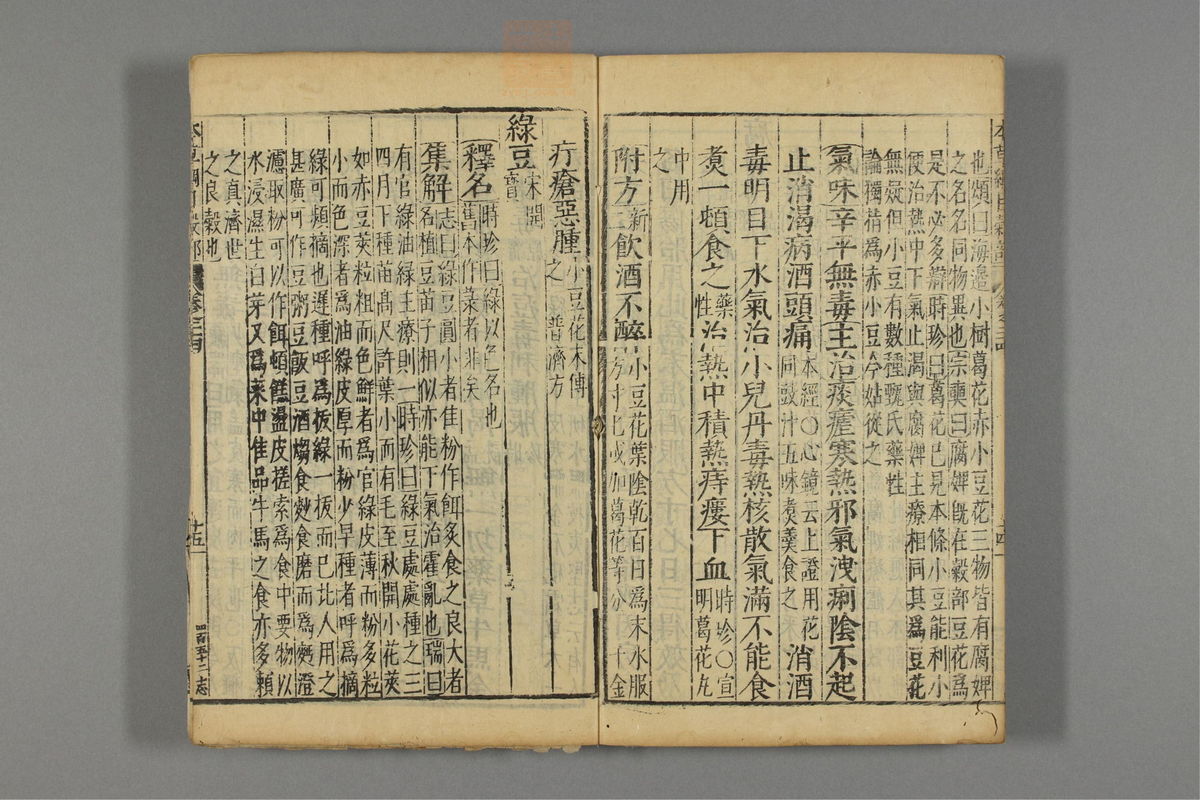 也頌曰海邊小樹葛花赤小豆花三物皆有腐婢
之名名同物異也宗奭曰腐婢既在穀部豆花爲
是不必多辯時珍曰葛花已見本條小豆能利小
便治熱中下氣止渴與腐婢主療相同其爲豆花
無疑但小豆有數種甄氏藥性
論獨指爲赤小豆今姑從之
氣味辛平無毒主治痎瘧寒熱邪氣洩痢陰不起
止消渴病酒頭痛本經〇心鏡云上證用花同豉汁五味煮羹食之消酒
毒明目下水氣治小兒丹毒熱核散氣滿不能食
煮一頓食之藥性治熱中積熱痔瘻下血時珍〇宣明葛花丸
中用
之
附方二新飲酒不醉小豆花葉陰乾百日爲末水服方寸匕或加葛花等分千金
疔瘡惡腫小豆花末傅之普濟方
綠豆宋開寶
釋名時珍曰綠以色名也舊本作菉者非矣
集解志曰綠豆圓小者佳粉作餌炙食之良大者
名植豆苗子相似亦能下氣治霍亂也瑞曰
有官綠油綠主療則一時珍曰綠豆處處種之三
四月下種苗高尺許葉小而有毛至秋開小花莢
如赤豆莢粒粗而色鮮者爲官綠皮薄而粉多粒
小而色深者爲油綠皮厚而粉少早種者呼爲摘
綠可頻摘也遲種呼爲拔綠一拔而已北人用之
甚廣可作豆粥豆飯豆酒煼食麨食磨而爲麪澄
濾取粉可以作餌頓餻盪皮搓索爲食中要物以
水浸濕生白芽又爲菜中佳品牛馬之食亦多賴
之真濟世
之良穀也
卷二十四
十五
四百五十二
志